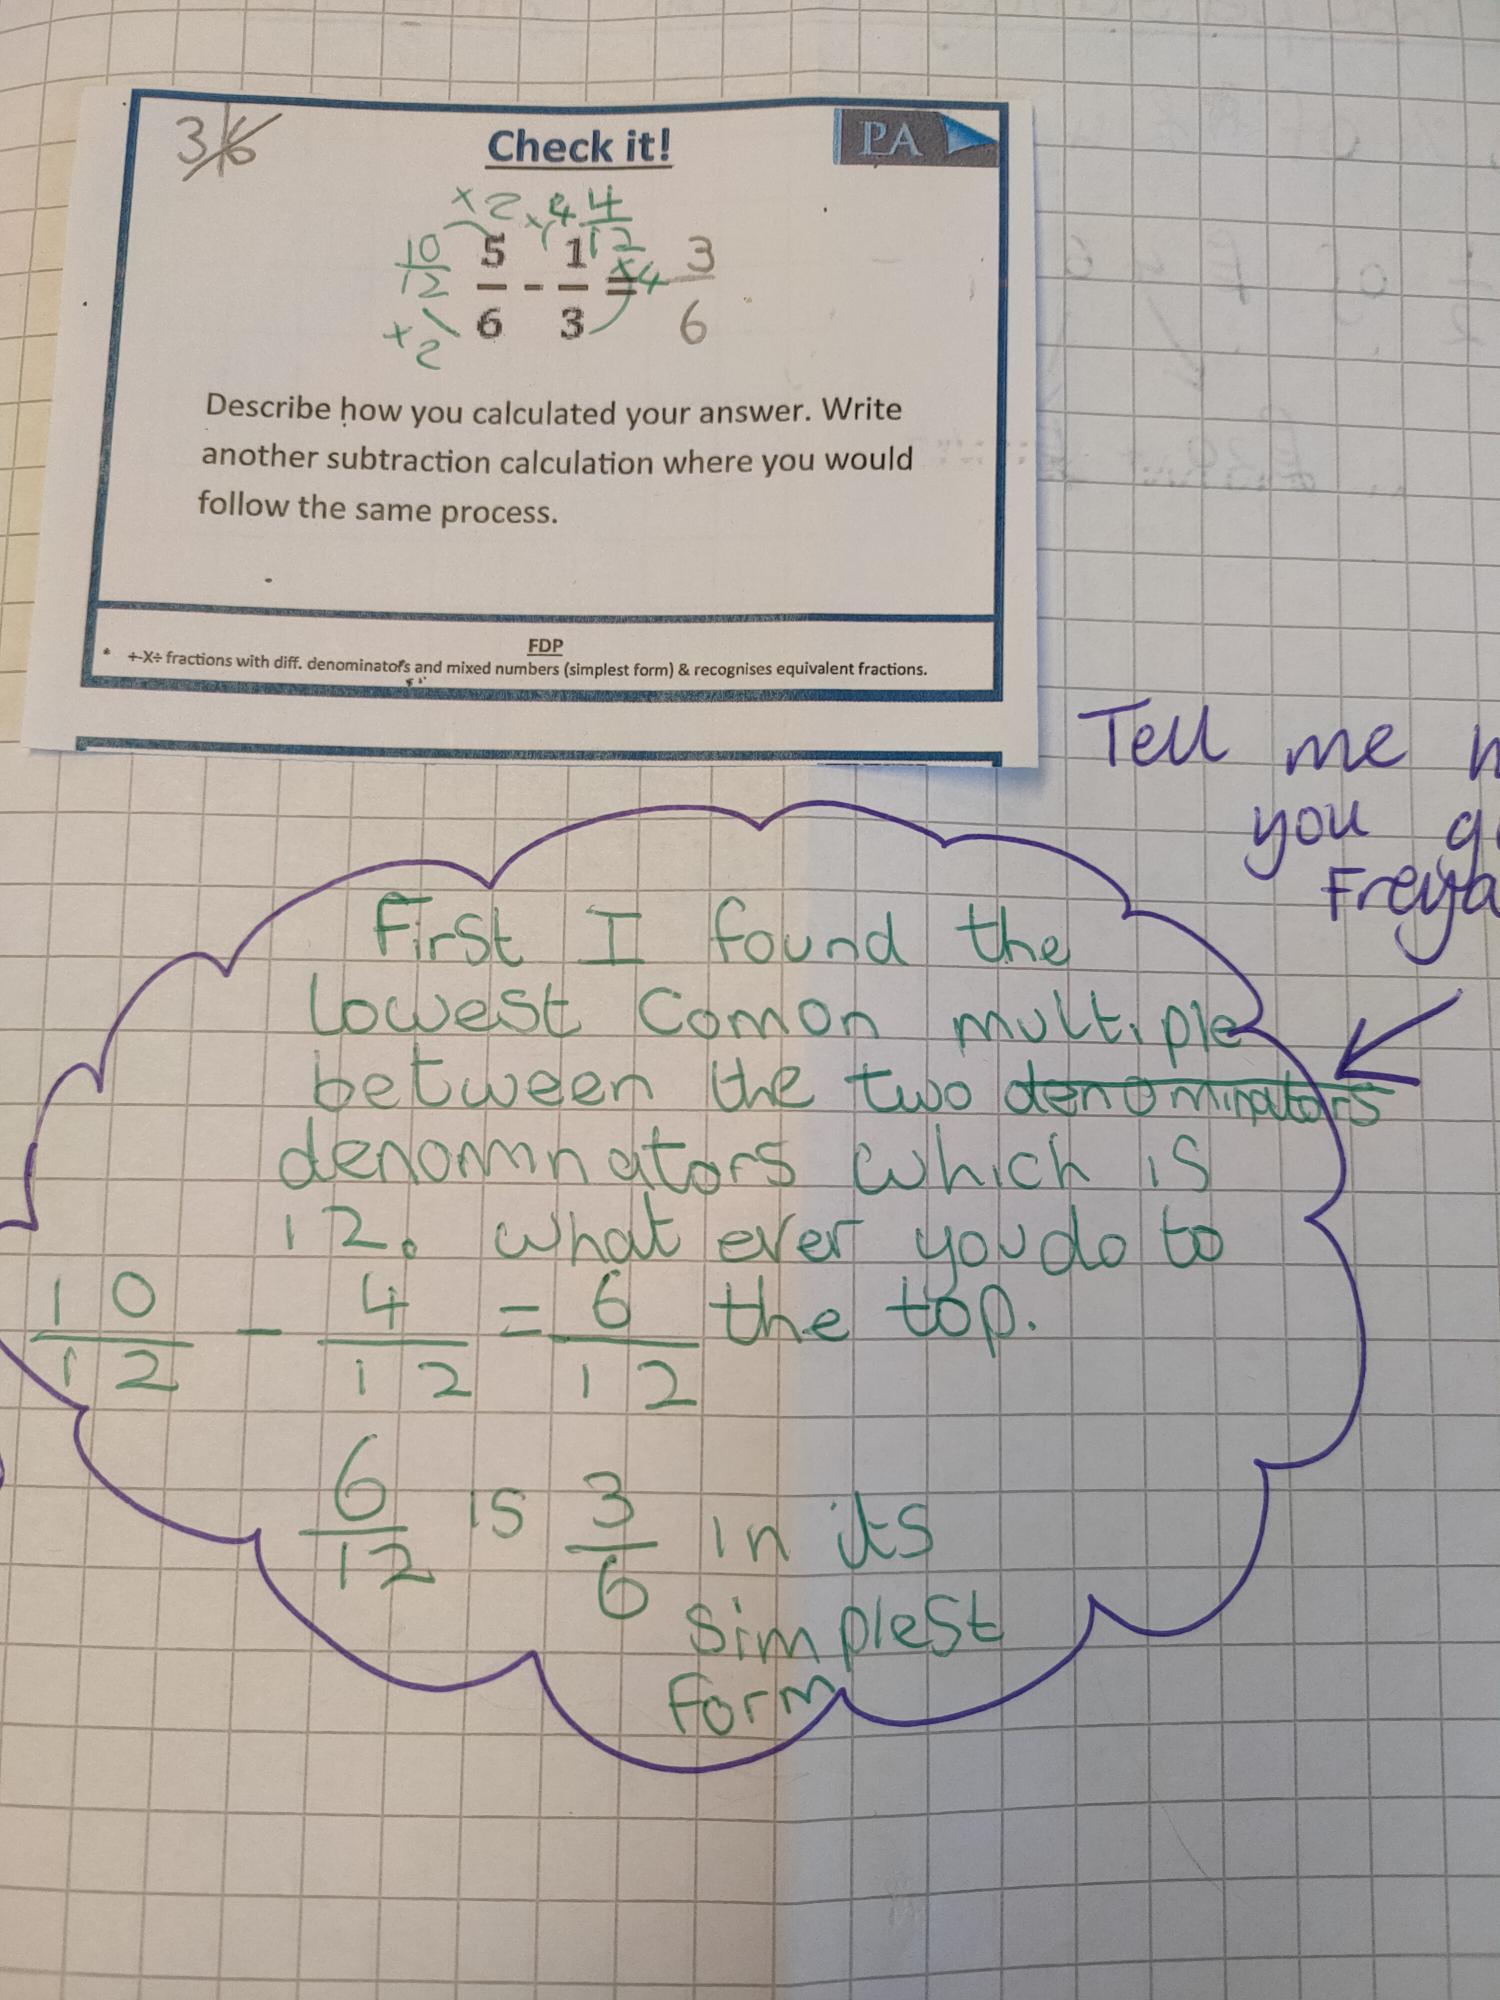 3/6
Check it!
PA
×2 ×4 4/12
10/12 5/6 - 1/3 = 3/6
×2 ×4
Describe how you calculated your answer. Write
another subtraction calculation where you would
follow the same process.
FDP
* +-X÷ fractions with diff. denominators and mixed numbers (simplest form) & recognises equivalent fractions.
Tell me
you
Freya
First I found the
lowest comon multiple
between the two denominators
denomnators which is
12. what ever you do to
the top.
10/12 - 4/12 = 6/12
6/12 is 3/6 in its
simplest
form